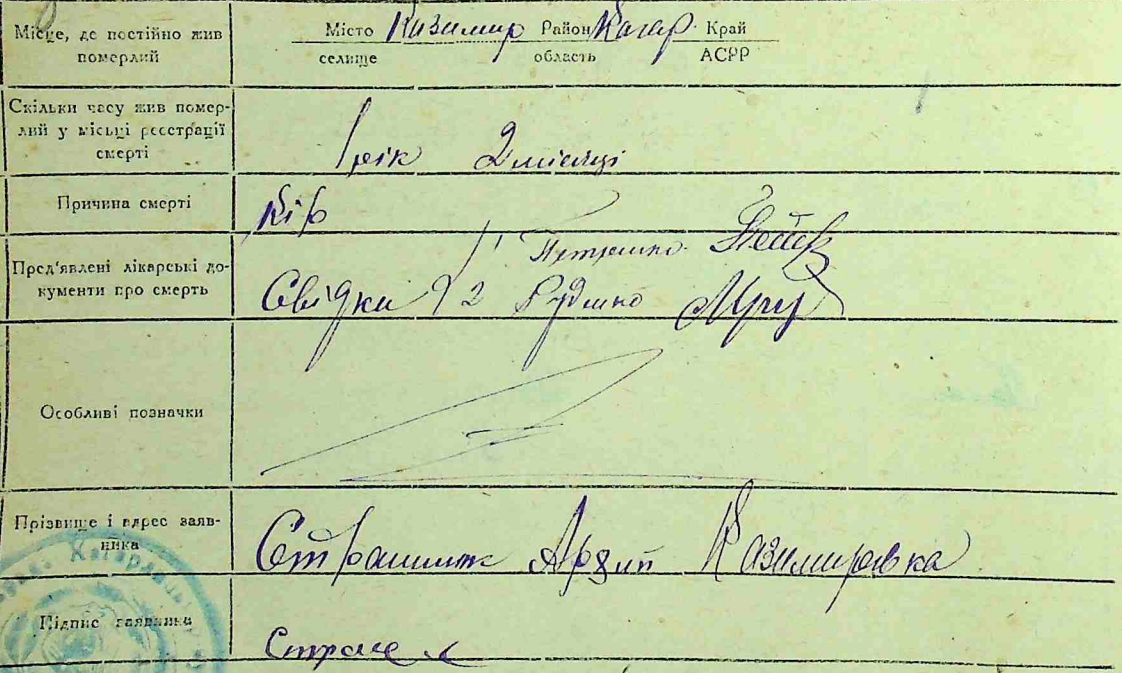 Місце, де постійно жив померлий
Місто Казимир Район Кагар. Край
селище область АСРР
Скільки часу жив помер-
лий у місці реєстрації
смерті
1 рік 2 місяці
Причина смерті
Кір
Пред'явлені лікарські до-
кументи про смерть
1 Петрашко
Свідки 2 Рудико
Особливі позначки
Прізвище і адрес заяв-
ника
Архип Казимировка
Підпис заявника